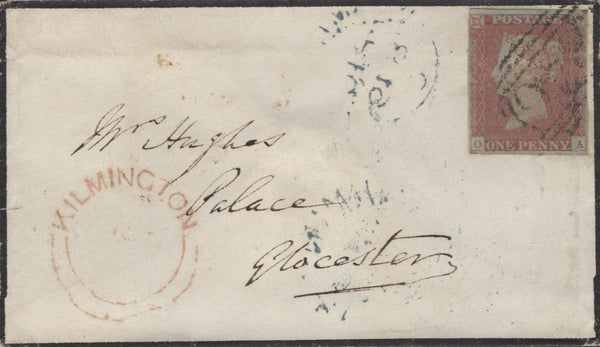 POSTAGE
O A
ONE PENNY
Mrs Hughes
KILMINGTON
Palace
Glocester